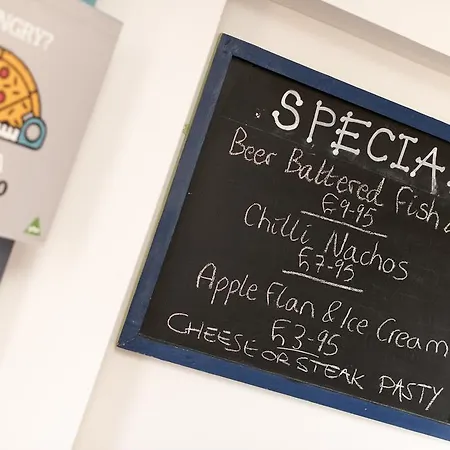 HUNGRY?
SPECIA
Beer Battered Fish &
£9-95
Chilli Nachos
£7-95
Apple Flan & Ice Cream
£3-95
CHEESE OR STEAK PASTY